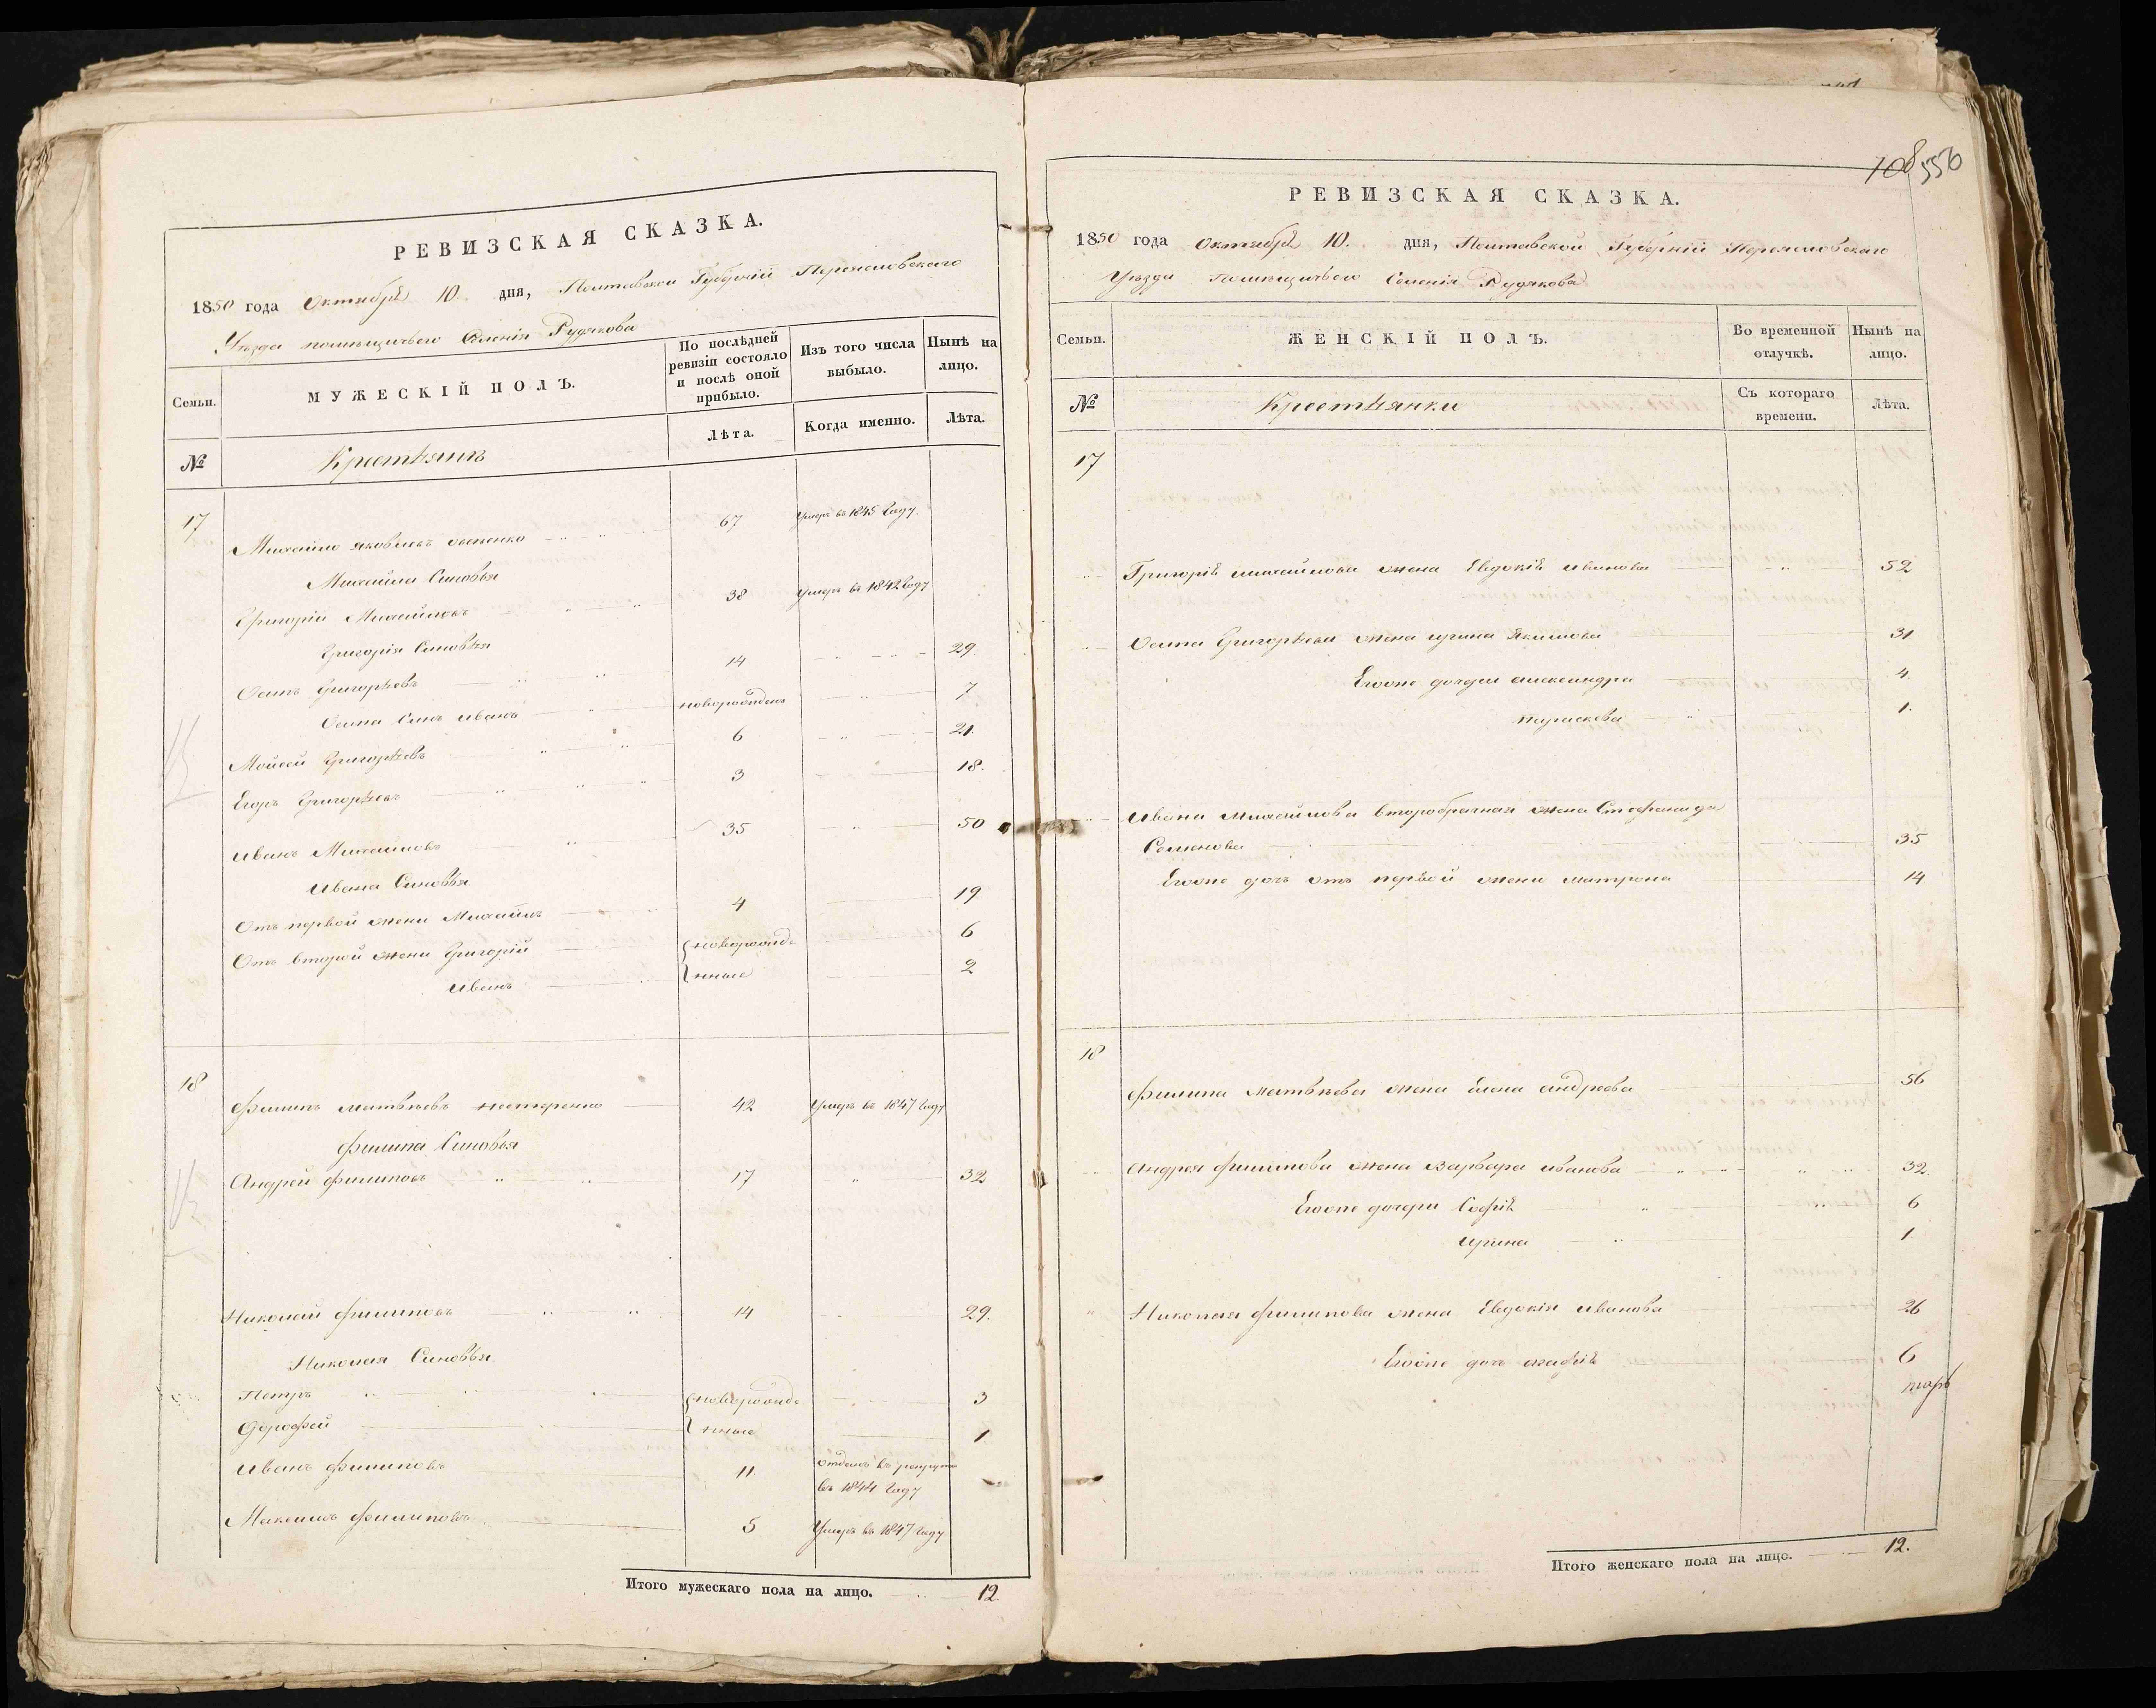 РЕВИЗСКАЯ СКАЗКА.
1850 года Октября 10. дня, Полтавской Губерніи Переяславскаго
Уѣзда помѣщичьего Селенія Рудякова
Семьи.
МУЖЕСКІЙ ПОЛЪ.
По послѣдней ревизіи состояло и послѣ оной прибыло.
Изъ того числа выбыло.
Нынѣ на лицо.
№
Крестьянъ
Лѣта.
Когда именно.
Лѣта.
17
Михайло Яковлевъ 67 Умеръ въ 1845 Году.
Михайла Синовья
Григорій Михайловъ 38 Умеръ въ 1842 Году
Григорія Синовья
Осипъ Григорьевъ 14 29.
Осипа Синъ Иванъ новорожденъ 7
Мойсей Григорьевъ 6 21.
Егоръ Григорьевъ 3 18.
Иванъ Михайловъ 35 50
Ивана Синовья
Отъ первой жени Михайлъ 4 19
Отъ второй жени Григорій новорожде 6
Иванъ нные 2
18
Филипъ Матвѣевъ Нестеренко 42 Умеръ въ 1847 Году
Филипа Синовья
Андрей Филиповъ 17 32
Николай Филиповъ 14 29.
Николая Синовья
Петръ новорожде 3
Дорофей нные 1
Иванъ Филиповъ 11. отданъ въ рекруты
въ 1844 Году
Максимъ Филиповъ 5 Умеръ въ 1847 Году
Итого мужескаго пола на лицо. 12.
108 556
РЕВИЗСКАЯ СКАЗКА.
1850 года Октября 10. дня, Полтавской Губерній Переяславскаго
Уѣзда помѣщичьего Селенія Рудякова
Семьи.
ЖЕНСКІЙ ПОЛЪ.
Во временной отлучкѣ.
Нынѣ на лицо.
№
Крестьянки
Съ котораго времени.
Лѣта.
17
Григорія Михайлова жена Евдокія Иванова 52
Осипа Григорьева жена Ирина Якимова 31
Егоже дочери Александра 4.
Параскева 1.
Ивана Михайлова второбрачная жена Стефанида
Семенова 35
Егоже дочъ отъ первой жени Матрона 14
18
Филипа Матвѣева жена Елена Андреева 56
Андрея Филипова жена Варвара Иванова 32.
Егоже дочери Софія 6
Ирина 1
Николая Филипова жена Евдокія Иванова 26
Егоже дочъ 6
Итого женскаго пола на лицо. 12.